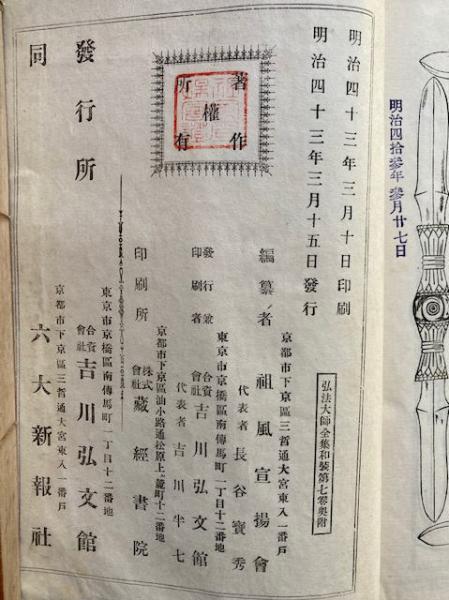 明治四拾參年 參月廿七日
明治四十三年三月十日印刷
明治四十三年三月十五日發行
著作
權
所有
弘法大師全集和裝第七零奧附
京都市下京區三哲通大宮東入一番戶
編纂者 祖風宣揚會
代表者 長谷寶秀
東京市京橋區南傳馬町一丁目十二番地
發行兼印刷者 合資會社 吉川弘文館
代表者 吉川半七
京都市下京區油小路通松原上ル麓町十二番地
印刷所 株式會社 藏經書院
東京市京橋區南傳馬町一丁目十二番地
發行所 合資會社 吉川弘文館
京都市下京區三哲通大宮東入一番戶
同 六大新報社